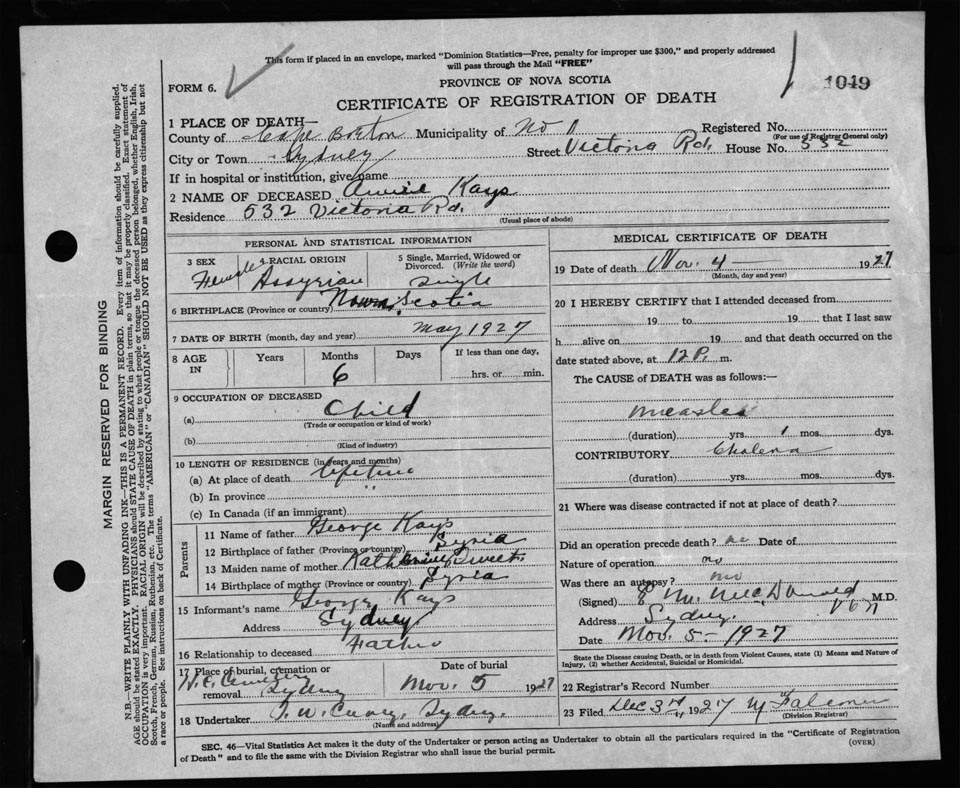 This form if placed in an envelope, marked "Dominion Statistics—Free, penalty for improper use $300," and properly addressed
will pass through the Mail "FREE"
FORM 6.
PROVINCE OF NOVA SCOTIA
1049
CERTIFICATE OF REGISTRATION OF DEATH
1 PLACE OF DEATH—
County of Cape Breton Municipality of No 1 Registered No.
(For use of Registrar General only)
City or Town Sydney Street Victoria Rd. House No. 532
If in hospital or institution, give name
2 NAME OF DECEASED Annie Kays
Residence 532 Victoria Rd.
(Usual place of abode)
PERSONAL AND STATISTICAL INFORMATION
3 SEX
Female
4 RACIAL ORIGIN
Assyrian
5 Single, Married, Widowed or
Divorced. (Write the word)
Single
6 BIRTHPLACE (Province or country) Nova Scotia
7 DATE OF BIRTH (month, day and year) May 1927
8 AGE
IN
Years
Months
6
Days
If less than one day,
hrs. or min.
9 OCCUPATION OF DECEASED
(a) Child
(Trade or occupation or kind of work)
(b)
(Kind of industry)
10 LENGTH OF RESIDENCE (in years and months)
(a) At place of death lifetime
(b) In province "
(c) In Canada (if an immigrant)
Parents
11 Name of father George Kays
12 Birthplace of father (Province or country) Syria
13 Maiden name of mother Katherine
14 Birthplace of mother (Province or country) Syria
15 Informant's name George Kays
Address Sydney
16 Relationship to deceased Father
17 Place of burial, cremation or
removal Sydney
Date of burial
Nov. 5 1927
18 Undertaker Sydney.
(Name and address)
MEDICAL CERTIFICATE OF DEATH
19 Date of death Nov. 4 — 1927
(Month, day and year)
20 I HEREBY CERTIFY that I attended deceased from
19 to 19 that I last saw
h alive on 19 and that death occurred on the
date stated above, at 12 P. m.
The CAUSE of DEATH was as follows:—
Measles
(duration) yrs. 1 mos. dys.
CONTRIBUTORY Cholera
(duration) yrs. mos. dys.
21 Where was disease contracted if not at place of death?
Did an operation precede death? no Date of
Nature of operation no
Was there an autopsy? no
(Signed) McDonald M.D.
Address Sydney
Date Nov. 5 — 1927
State the Disease causing Death, or in death from Violent Causes, state (1) Means and Nature of
Injury, (2) whether Accidental, Suicidal or Homicidal.
22 Registrar's Record Number
23 Filed Dec 3rd, 1927 M Falconer
(Division Registrar)
SEC. 46—Vital Statistics Act makes it the duty of the Undertaker or person acting as Undertaker to obtain all the particulars required in the "Certificate of Registration
of Death" and to file the same with the Division Registrar who shall issue the burial permit.
(OVER)
MARGIN RESERVED FOR BINDING
N.B.—WRITE PLAINLY WITH UNFADING INK—THIS IS A PERMANENT RECORD. Every item of information should be carefully supplied.
AGE should be stated EXACTLY. PHYSICIANS should STATE CAUSE OF DEATH in plain terms, so that it may be properly classified. Exact statement of
OCCUPATION is very important. RACIAL ORIGIN will be described by stating to what people or tongue the deceased person belonged, whether English, Irish,
Scotch, French, German, Russian, Ruthenian, etc. The terms "AMERICAN" or "CANADIAN" SHOULD NOT BE USED as they express citizenship but not
a race or people. See instructions on back of Certificate.